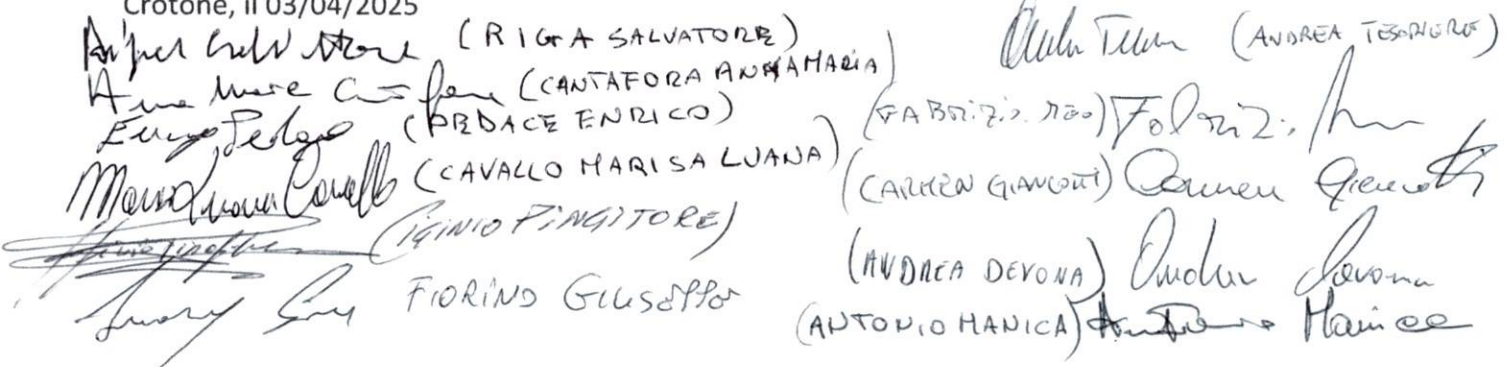 Crotone, il 03/04/2025
(RIGA SALVATORE)
Anna Maria (CANTAFORA ANNAMARIA)
Enrico Pedace (PEDACE ENRICO)
Marisa Luana Cavallo (CAVALLO MARISA LUANA)
(IGINIO PINGITORE)
FIORINO GIUSEPPE
(ANDREA TESORIERE)
(FABRIZIO MEO) Fabrizio
(CARMEN GIANCOTTI) Carmen Giancotti
(ANDREA DEVONA) Andrea Devona
(ANTONIO MANICA) Antonio Manica